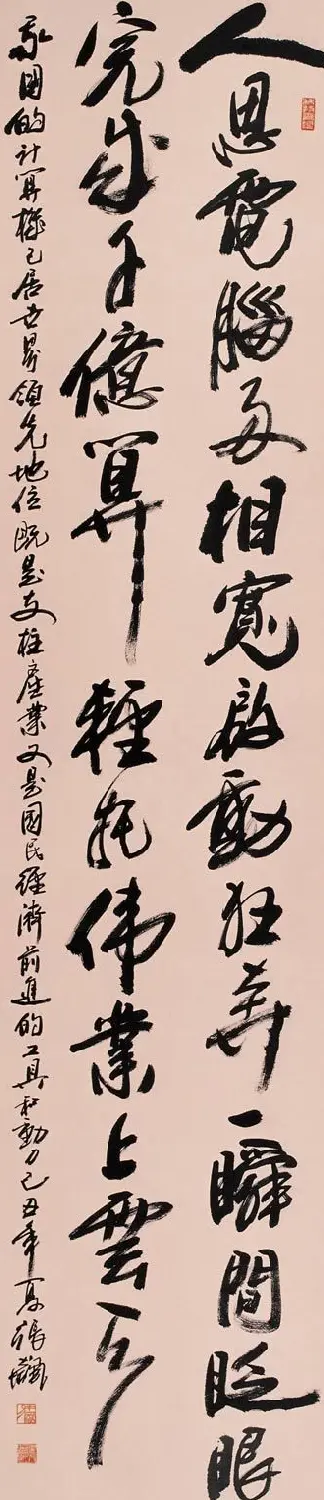 人思電腦互相寬啟動狂奔一瞬間眨眼
完成千億算輕托伟業上雲天
我国的计算機已居世界領先地位既是支柱產業又是國民經濟前進的工具和動力己丑年夏張飆